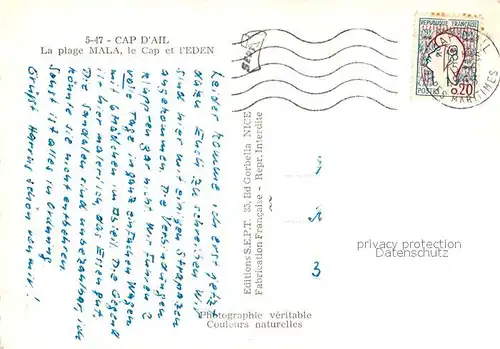 5-47 - CAP D'AIL
La plage MALA, le Cap et l'EDEN
REPUBLIQUE FRANÇAISE
POSTES 0,20
MARITIMES
Leider komme ich erst jetzt
dazu Euch zu schreiben. Wir
sind hier mit einigen Strapazen
angekommen. Die Verbindungen
klappten gar nicht. Nur fuhren 2
volle Tage in ganz einfachen Wagen
mit 6 Mädchen im Abteil. Die Gegend
ist hier malerisch, das Essen gut.
Die Sandalen sind unbezahlbar, ich
könnte sie nicht entbehren.
Sonst ist alles in Ordnung
Grüßt Harros schön von mir!
Editions S.E.P.T. 35, Bd Gorbella NICE
Fabrication Française - Repr. Interdite
3
privacy protection
Datenschutz
Photographie véritable
Couleurs naturelles